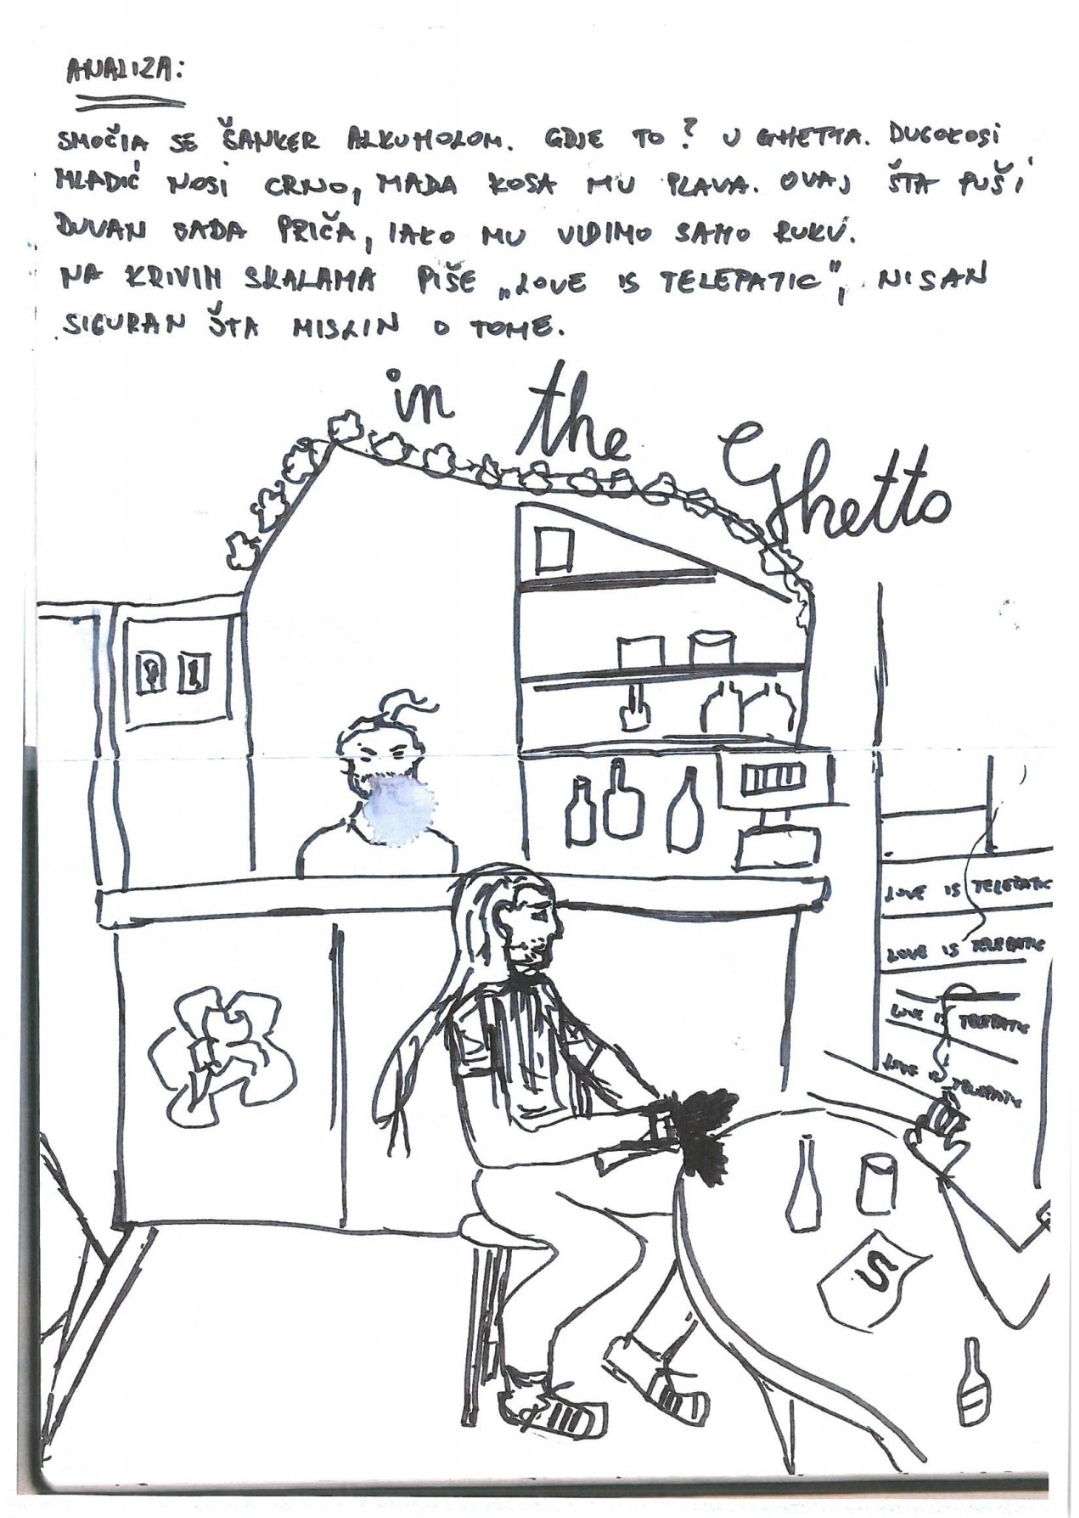 ANALIZA:
SMOČIA SE ŠANKER ALKUHOLOM. GDJE TO? U GHETTA. DUGOKOSI
MLADIĆ NOSI CRNO, MADA KOSA MU PLAVA. OVAJ ŠTA PUŠI
DUVAN SADA PRIČA, IAKO MU VIDIMO SAMO RUKU.
NA KRIVIM SKALAMA PIŠE „LOVE IS TELEPATIC", NISAN
SIGURAN ŠTA MISLIN O TOME.
in the Ghetto
LOVE IS TELEPATIC
LOVE IS TELEPATIC
LOVE IS TELEPATIC
LOVE IS TELEPATIC
S